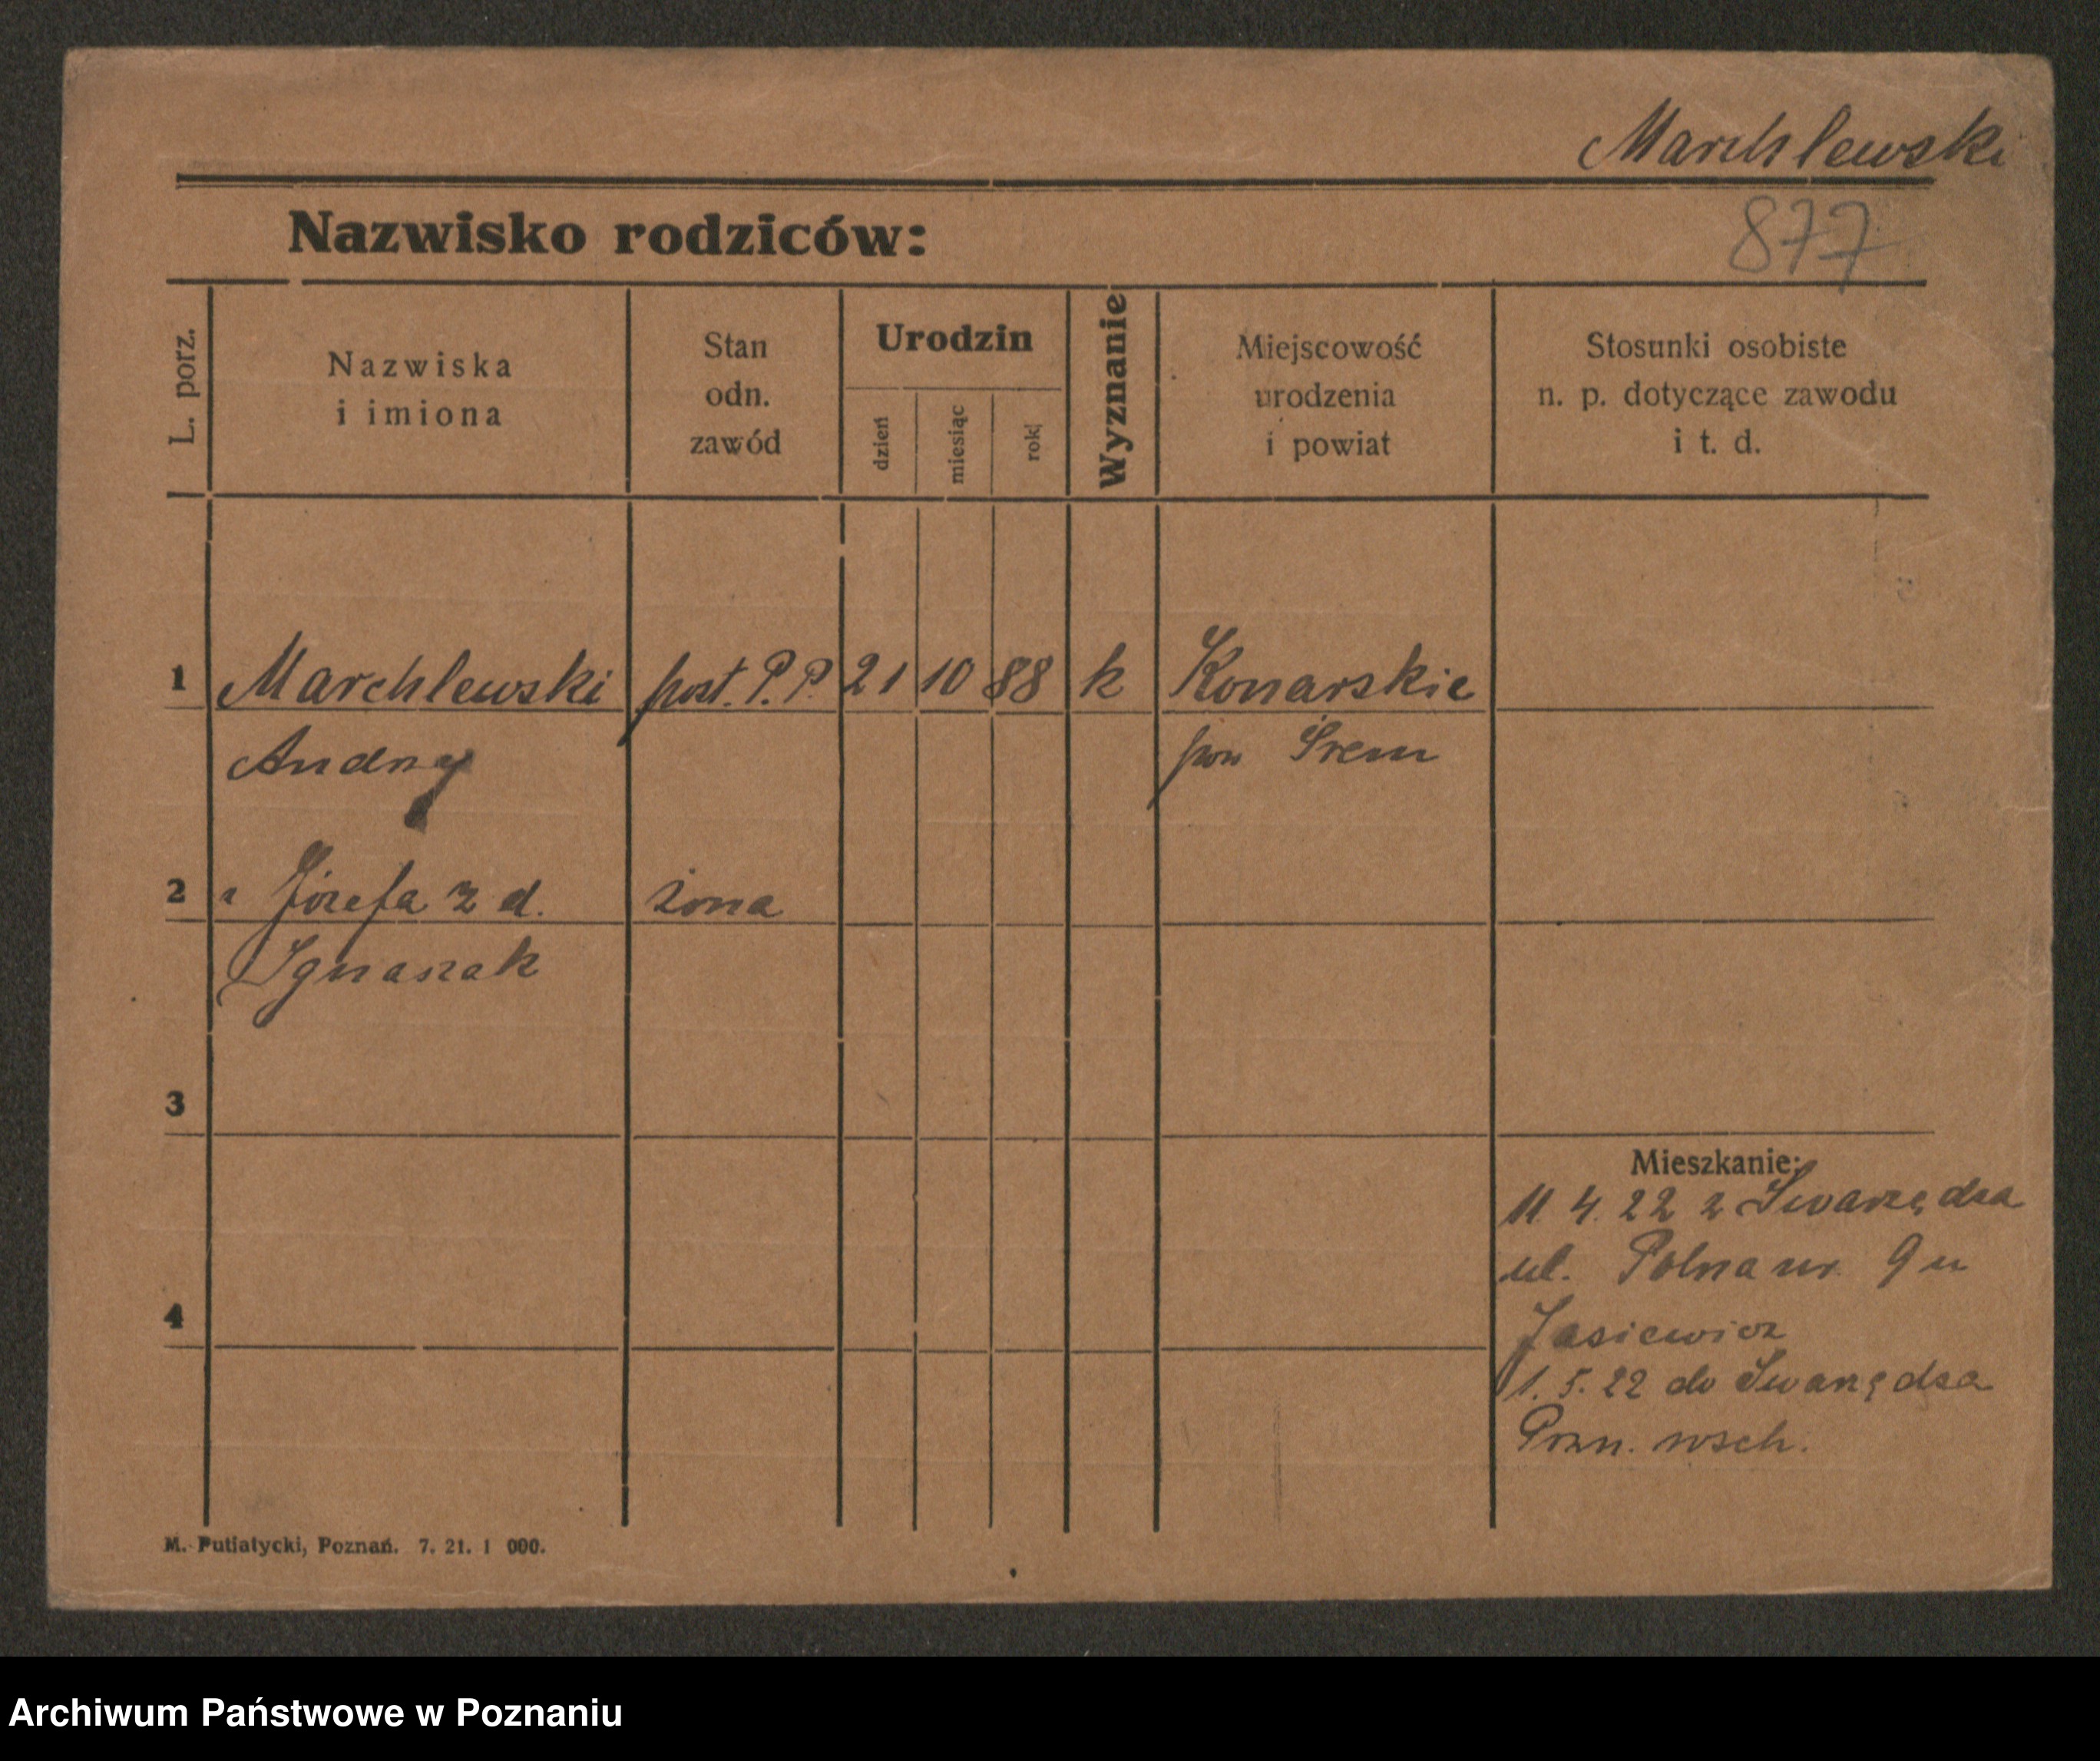 Marchlewski
Nazwisko rodziców:
877
L. porz.
Nazwiska
i imiona
Stan
odn.
zawód
Urodzin
dzień
miesiąc
rok
Wyznanie
Miejscowość
urodzenia
i powiat
Stosunki osobiste
n. p. dotyczące zawodu
i t. d.
1 Marchlewski post. P. P. 21 10 88 k Konarskie
Andrzy pow Śrem
2 " Józefa z d. żona
Ignaszak
3
Mieszkanie:
11. 4. 22 z Swarzędza
ul. Polna nr. 9 u
4
Jasiewicz
1. 5. 22 do Swarzędza
Pozn. wsch.
M. Putiatycki, Poznań. 7. 21. 1 000.
Archiwum Państwowe w Poznaniu